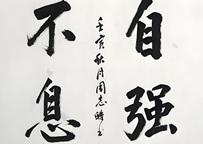 自强
不息
壬寅秋月周志峰书